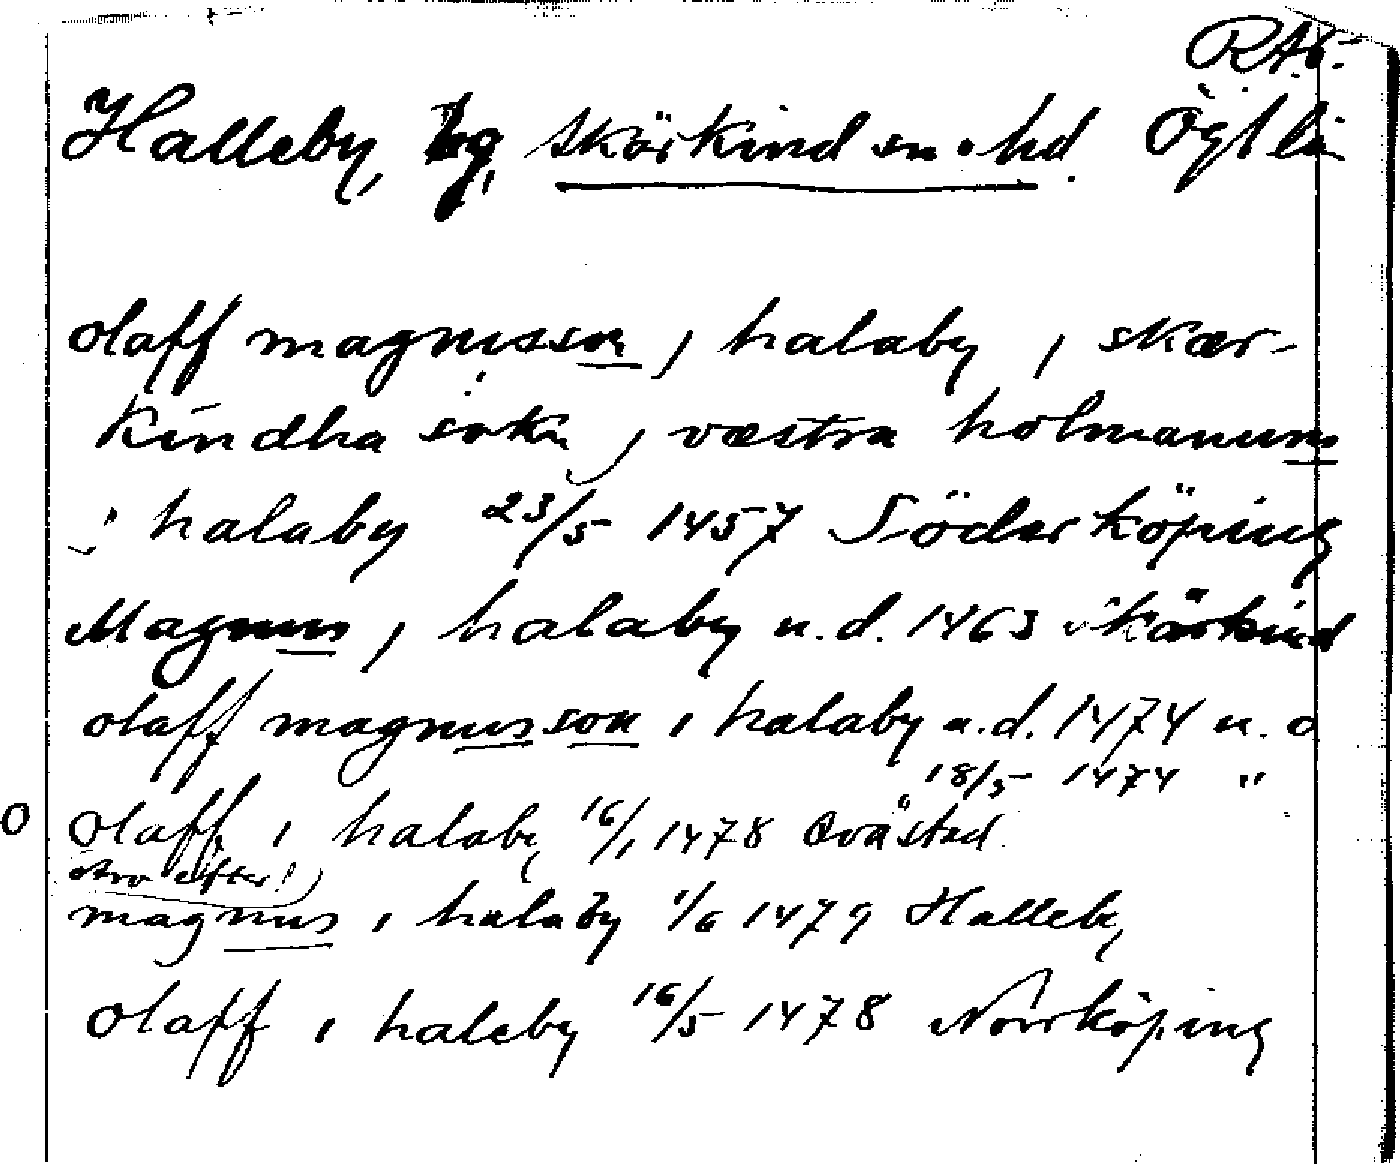 RAö.
Halleby, bg, Skärkind sn o. hd. Ögl län
olaff magnusson j halaby j skær-
kindha sokn j væstra holmanum
i halaby 23/5 1457 Söderköping
Magnus j halaby u.d. 1463 Skärkind
olaff magnusson i halaby u.d. 1474 u. o
18/5 1474 "
O Olaff i halaby 16/1 1478 Evästad
strax efter!)
magnus i halaby 1/6 1479 Halleby
Olaff i haleby 16/5 1478 Norrköping